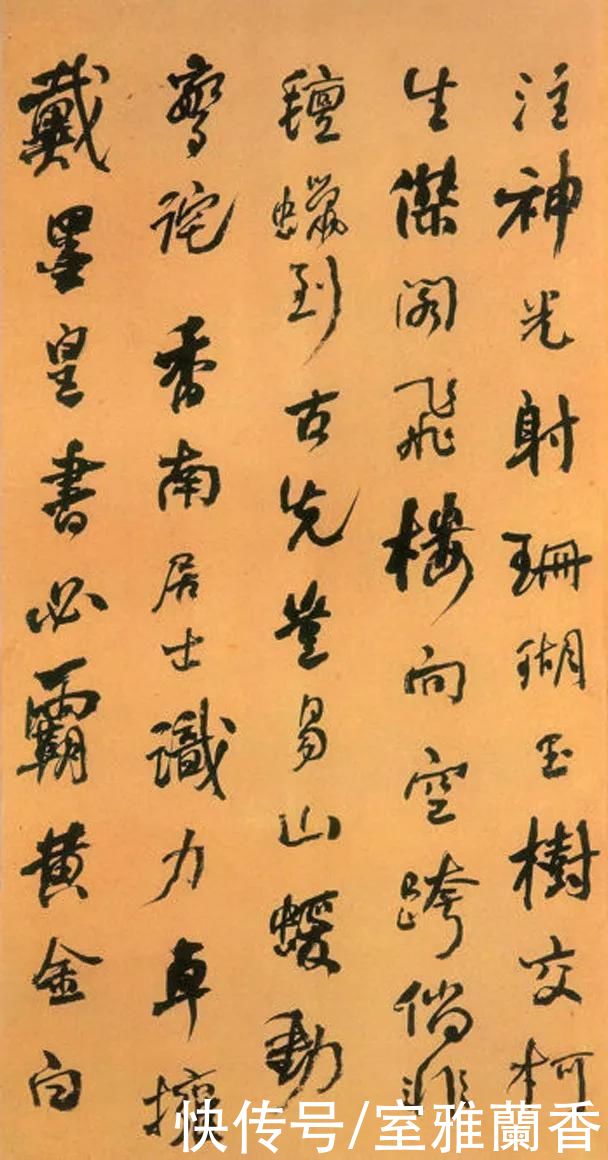 注神光射珊瑚玉樹交柯
生傑閣飛樓向空跨倘非
氊蠟到古先豈易山蝯動
驚詫香南居士識力卓擁
戴墨皇書必霸黄金白
快传号/室雅蘭香